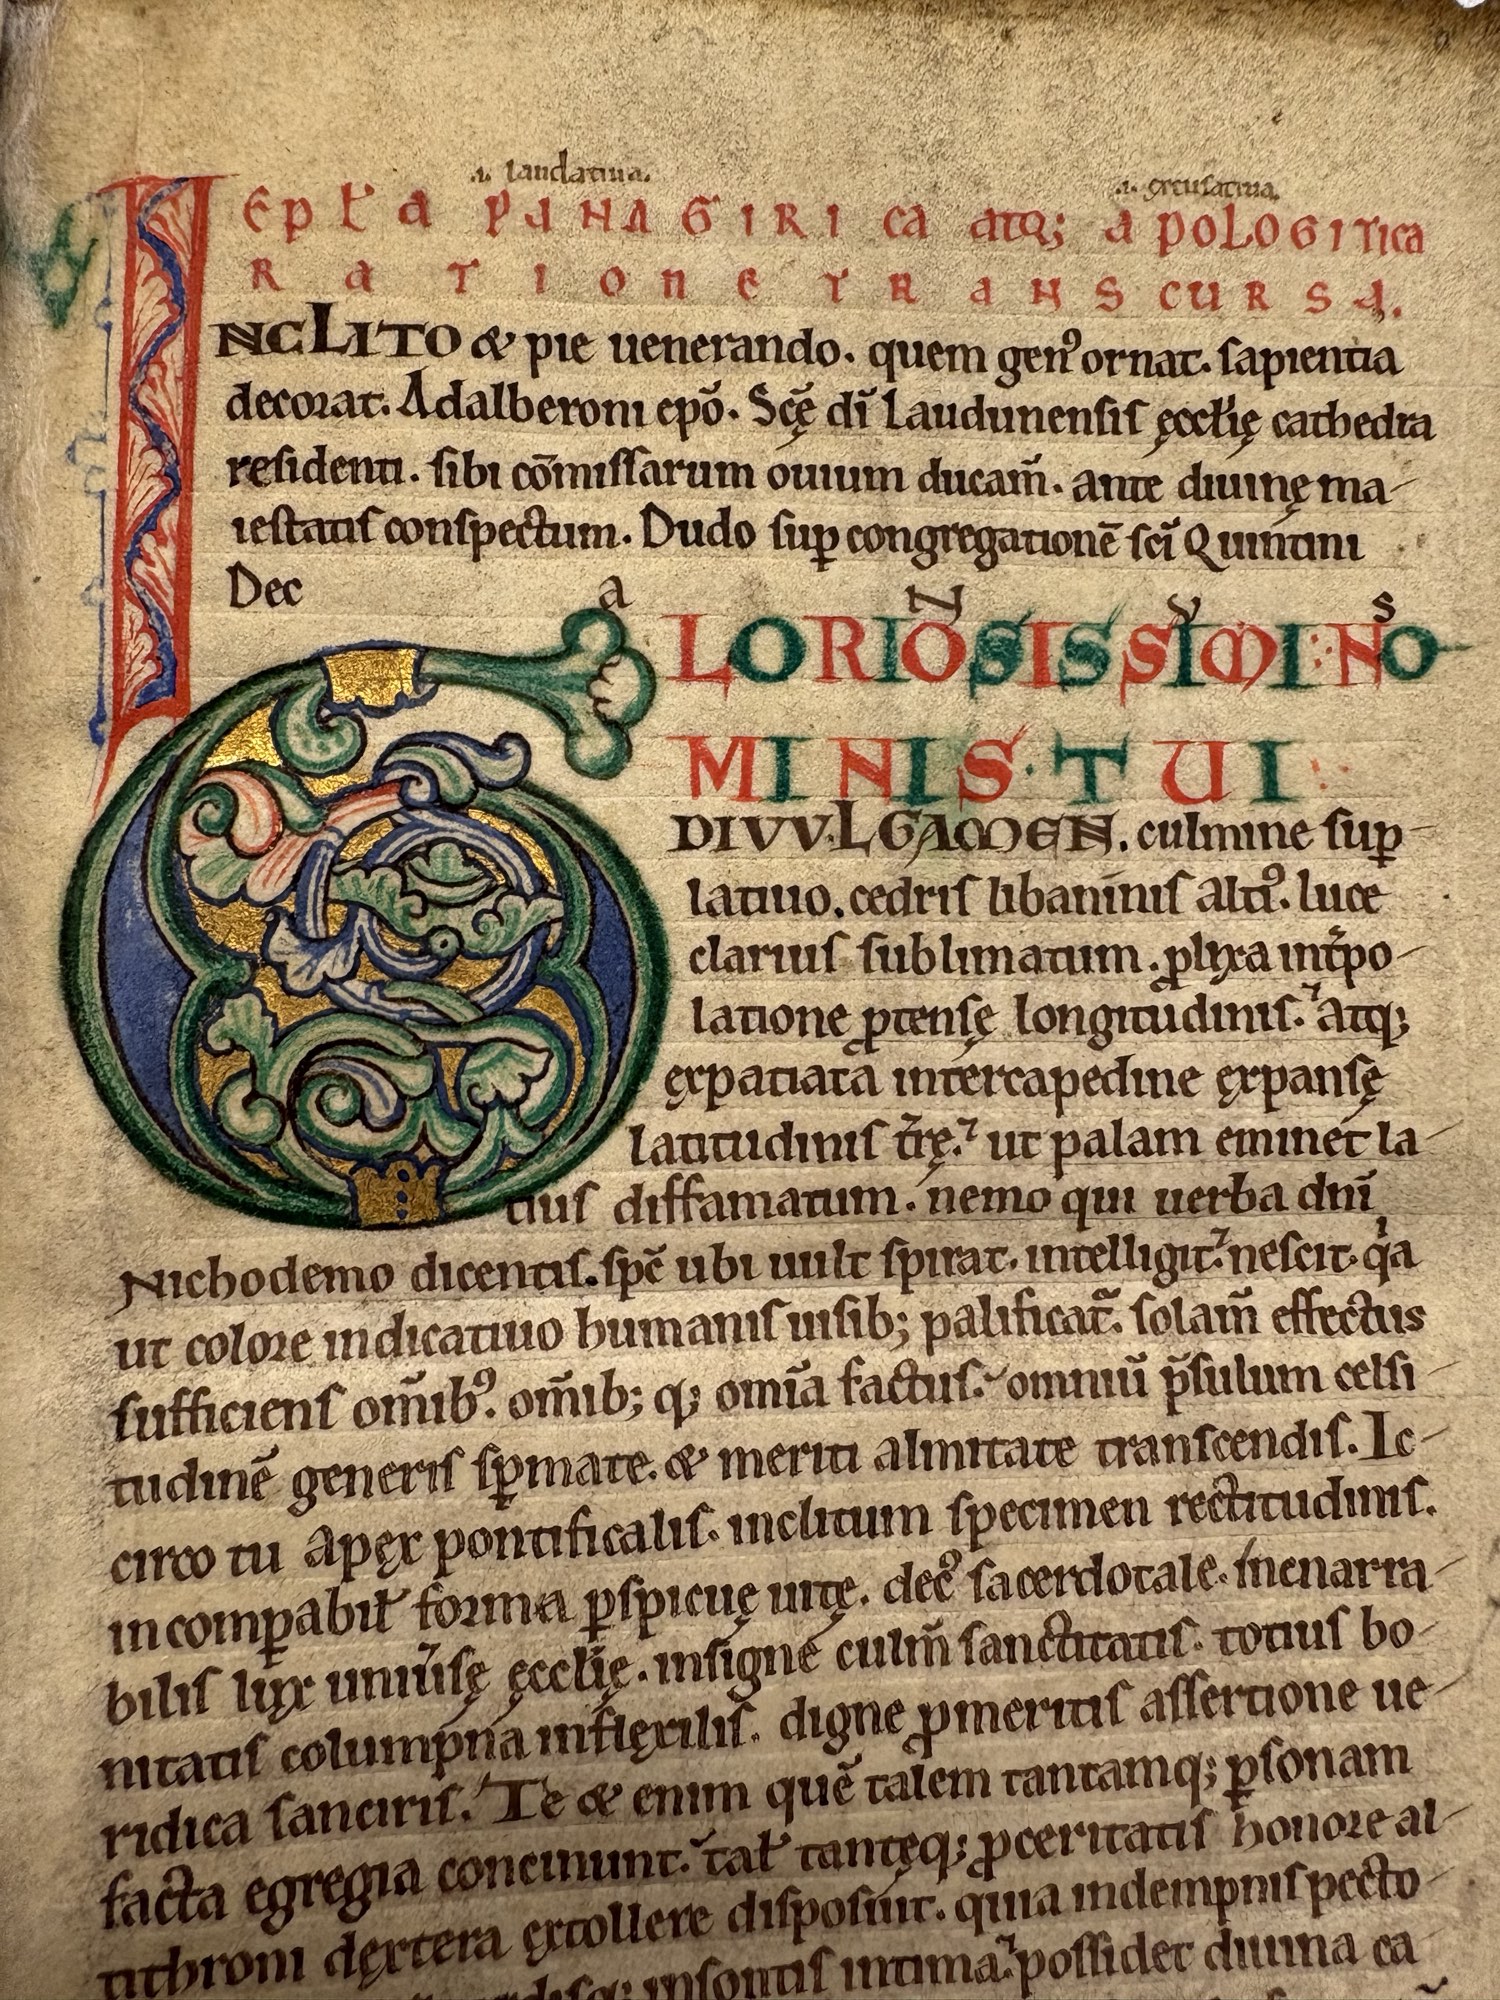 .i. laudatiua. .i. excusatiua.
Epl̄a PANAGIRICA ATQ; APOLOGITICA
RATIONE TRANSCURSA.
INCLITO & pie uenerando. quem genꝰ ornat. sapientia
decorat. Adalberoni ep̄o. Sc̄ę dī Laudunensis ęccl̄ię cathedra
residenti. sibi cōmissarum ouium ducam̄. ante diuinę ma-
iestatis conspectum. Dudo suꝑ congregationē sc̄i Quintini
Dec a N V S
GLORIOSISSIMI NO
MINIS TUI
DIVVLGAMEN. culmine suꝑ-
latiuo. cedris libaninis altiꝰ. luce
clarius sublimatum. ꝓlixa int̄po-
latione ꝓtensę longitudinis. Atq;
ęxpatiata intercapedine ęxpansę
latitudinis t̄rę. ut palam eminet la-
tius diffamatum. nemo qui uerba dn̄i
Nichodemo dicentis. sp̄c ubi uult spirat. intelligit. nescit. qa
ut colore indicatiuo humanis uisib; palificat̄. solam̄ effectus
sufficiens om̄ibꝰ. om̄ib; q; omīa factus. omniū p̄sulum celsi-
tudinē generis sꝑmate. & meriti almitate transcendis. Ic-
circo tu apęx pontificalis. inclitum specimen rectitudinis.
incomꝑabil̄ forma ꝑspicuę uitę. decꝰ sacerdotale. inenarra-
bilis lux uniūsę ęccl̄ię. insigne culm̄ sanctitatis. totius bo-
nitatis columpna inflexilis. digne ꝓ meritis assertione ue-
ridica sanciris. Te & enim quē talem tantamq; ꝑsonam
facta egregia concinunt. tal̄ tantęq; ꝓceritatis honore al-
tithroni dęxtera ęxtollere disposuit. quia indempnis pecto-
insontis intima possidet diuina ca